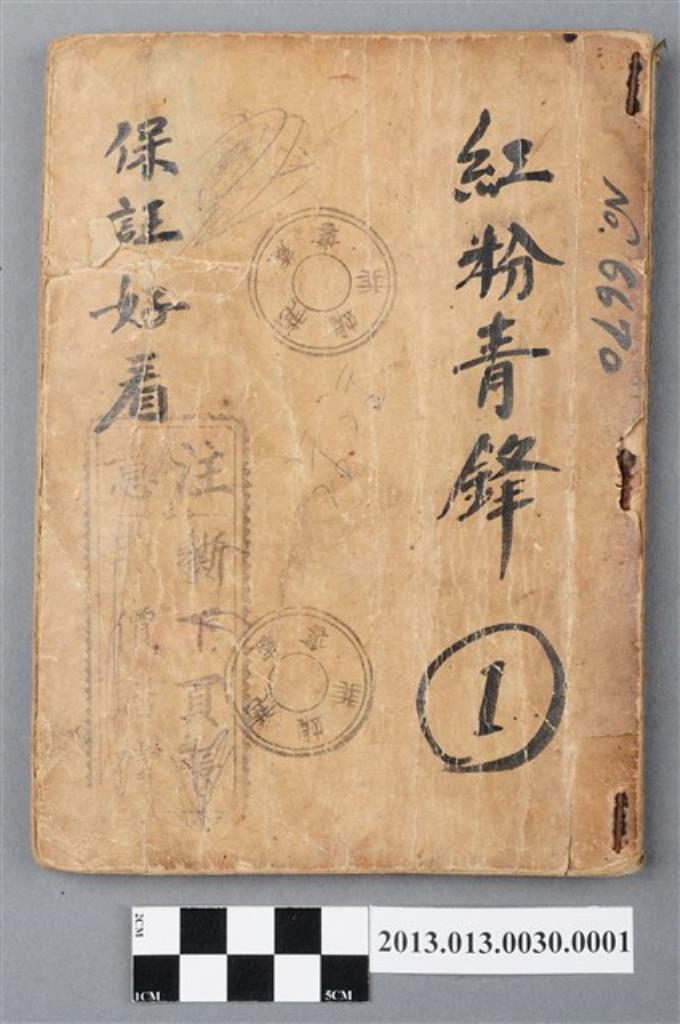 No. 6670
紅粉青鋒
1
保証好看
注撕下頁
意
價
2013.013.0030.0001
2CM
1CM
5CM